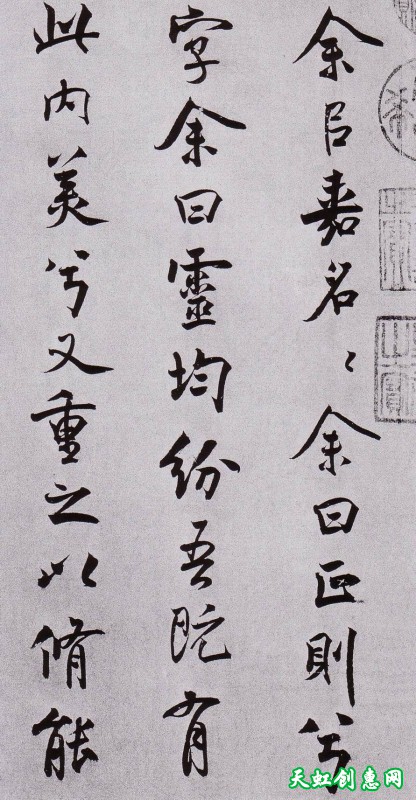 余㠯嘉名〻余曰正則兮
字余曰靈均紛吾既有
此内美兮又重之以脩能
天虹创惠网